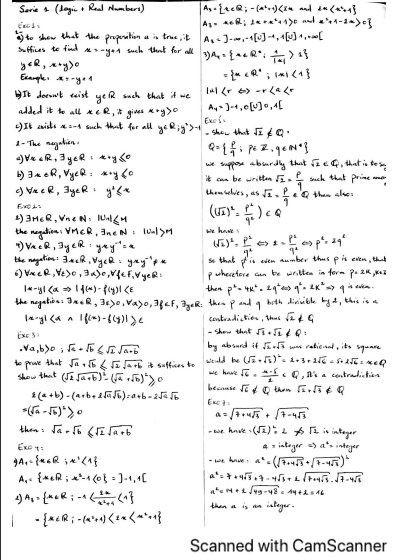 Serie 1 (Logic + Real Numbers)
Exo1:
a) to show that the proposition a is true, it
suffices to find x=-y+1 such that for all
y∈R, x+y>0
Example: x=-y+1
b) It doesn't exist y∈R such that if we
added it to all x∈R, it gives x+y>0
c) It exists x=-1 such that for all y∈R; y²>-1
2-The negation:
a) ∀x∈R, ∃y∈R : x+y≤0
b) ∃x∈R, ∀y∈R : x+y≤0
c) ∀x∈R, ∃y∈R : y²≤x
Exo2:
2) ∃M∈R, ∀n∈N : |Un|≤M
the negation: ∀M∈R, ∃n∈N : |Un|>M
4) ∀x∈R, ∃y∈R : yxy⁻¹=x
the negation: ∃x∈R, ∀y∈R : yxy⁻¹≠x
6) ∀x∈R, ∀ε>0, ∃α>0, ∀f∈F, ∀y∈R:
|x-y|<α ⇒ |f(x)-f(y)|<ε
the negation: ∃x∈R, ∃ε>0, ∀α>0, ∃f∈F, ∃y∈R:
|x-y|<α ∧ |f(x)-f(y)|≥ε
Exo3:
-∀a,b>0 ; √a+√b ≤ √2 √a+b
to prove that √a+√b ≤ √2 √a+b it suffices to
show that (√2 √a+b)²-(√a+√b)² ≥ 0
2(a+b)-(a+b+2√a√b)=a+b-2√a√b
=(√a-√b)²≥0
then: √a+√b ≤ √2 √a+b
Exo4:
1) A₁={x∈R ; x²<1}
A₁={x∈R ; x²-1<0} = ]-1,1[
2) A₂={x∈R ; -1<2x/x²+1<1}
={x∈R ; -(x²+1)<2x<x²+1}
A₂={x∈R ; -(x²+1)<2x and 2x<x²+1}
A₂= x∈R ; 2x+x²+1>0 and x²+1-2x>0}
A₂= ]-∞,-1[∪]-1,1[∪]1,+∞[
3) A₃={x∈R* ; 1/|x|>1}
={x∈R* ; |x|<1}
|a|<r ⇔ -r<a<r
A₃=]-1,0[∪]0,1[
-show that √2 ∉ Q.
Q={p/q ; p∈Z, q∈N*}
we suppose absurdly that √2∈Q, that is to say
it can be written √2=p/q such that prime among
themselves, as √2=p/q ∈ Q then also:
((√2)²=p²/q²) ∈ Q
we have:
(√2)²=p²/q² ⇔ 2=p²/q² ⇔ p²=2q²
so that p² is even number thus p is even, that
p wherefore can be written in form p=2K, K∈Z
then p²=4K²=2q² ⇔ q²=2K² ⇒ q is even.
then p and q both divisible by 2, this is a
contradiction, thus √2 ∉ Q
-show that √2+√3 ∉ Q:
by absurd if √2+√3 was rational, its square
would be (√2+√3)²=2+3+2√6=5+2√6=x∈Q
we have √6=x-5/2 ∈ Q, It's a contradiction
because √6 ∉ Q then √2+√3 ∉ Q
Exo7:
a=√7+4√3 + √7-4√3
-we have: (√2)²=2 ⇏ √2 is integer
a=integer ⇒ a²=integer
-we have: a²=(√7+4√3+√7-4√3)²
a²=7+4√3+7-4√3+2√7+4√3·√7-4√3
a²=14+2√49-48=14+2=16
then a is an integer.
Scanned with CamScanner